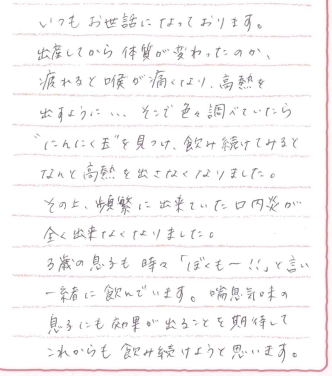 いつもお世話になっております。
出産してから体質が変わったのか、
疲れると喉が痛くなり、高熱を
出すように… そこで色々調べていたら
"にんにく玉"を見つけ、飲み続けてみると
なんと高熱を出さなくなりました。
その上、頻繁に出来ていた口内炎が
全く出来なくなりました。
3歳の息子も時々「ぼくも〜!!」と言い
一緒に飲んでいます。喘息気味の
息子にも効果が出ることを期待して
これからも飲み続けようと思います。